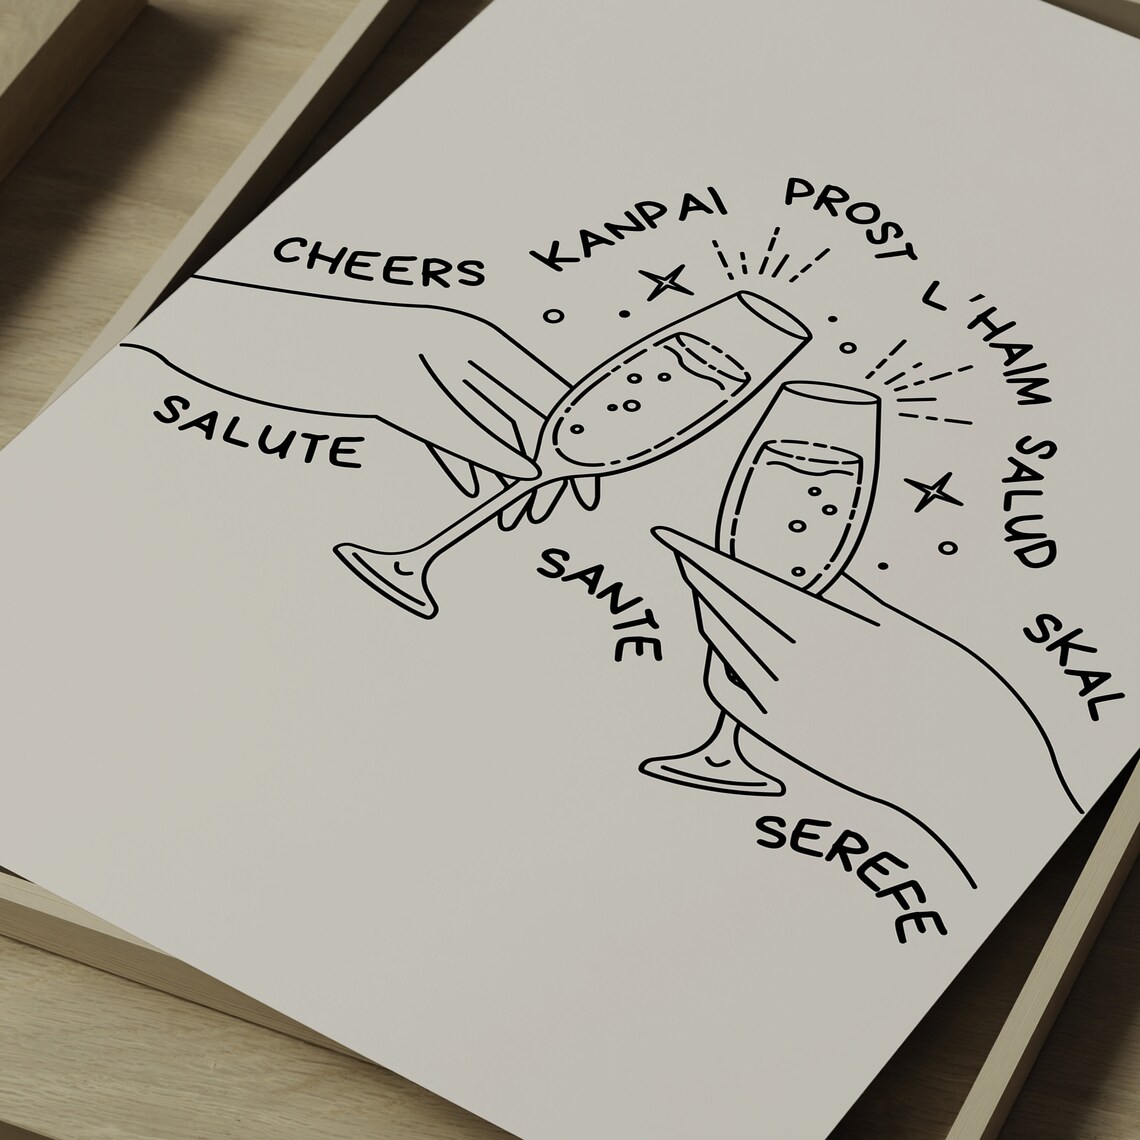 CHEERS
KANPAI
PROST
L'HAIM
SALUD
SKAL
SALUTE
SANTE
SEREFE